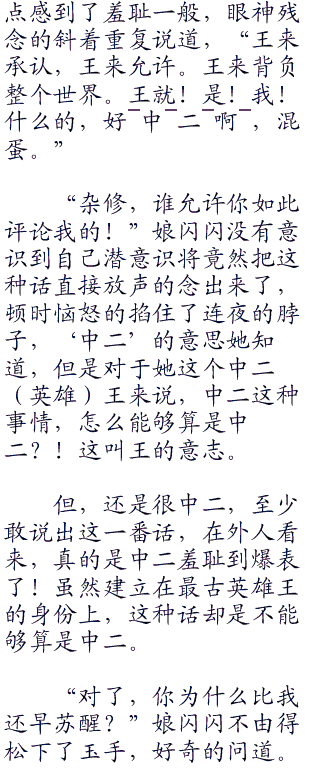 点感到了羞耻一般，眼神残
念的斜着重复说道，“王来
承认，王来允许。王来背负
整个世界。王就！是！我！
什么的，好¯中¯二¯啊¯，混
蛋。”
“杂修，谁允许你如此
评论我的！”娘闪闪没有意
识到自己潜意识将竟然把这
种话直接放声的念出来了，
顿时恼怒的掐住了连夜的脖
子，‘中二’的意思她知
道，但是对于她这个中二
（英雄）王来说，中二这种
事情，怎么能够算是中
二？！这叫王的意志。
但，还是很中二，至少
敢说出这一番话，在外人看
来，真的是中二羞耻到爆表
了！虽然建立在最古英雄王
的身份上，这种话却是不能
够算是中二。
“对了，你为什么比我
还早苏醒？”娘闪闪不由得
松下了玉手，好奇的问道。